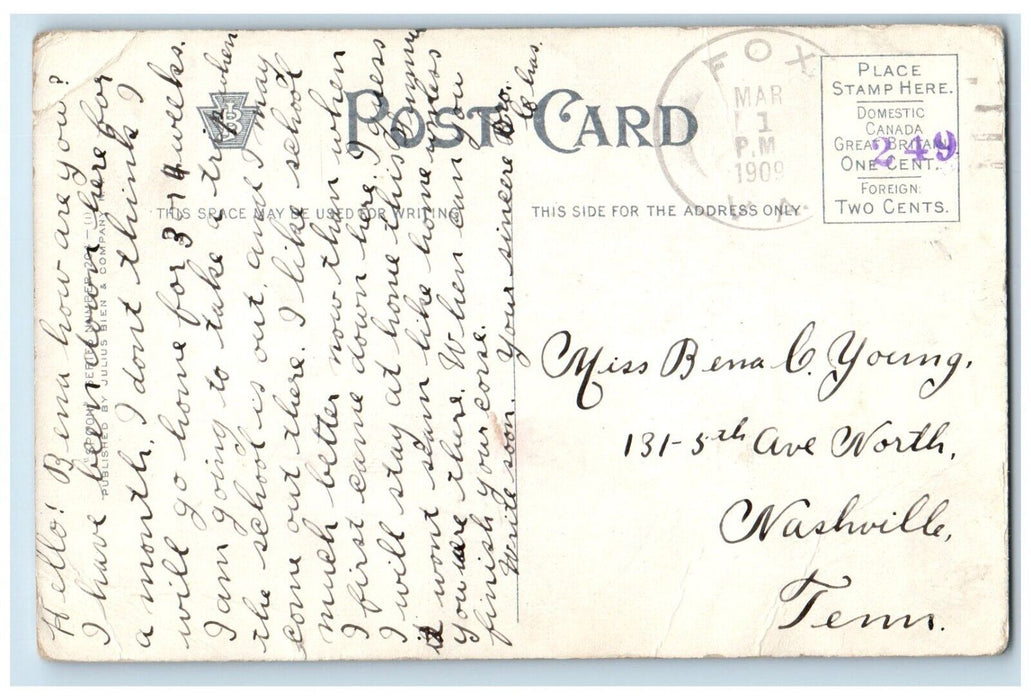 POST CARD
THIS SPACE MAY BE USED FOR WRITING
THIS SIDE FOR THE ADDRESS ONLY
PLACE
STAMP HERE.
DOMESTIC
CANADA
GREAT BRITAIN
ONE CENT.
FOREIGN:
TWO CENTS.
249
FOX
MAR
1
P.M
1909
VA
Miss Bena C. Young,
131-5th Ave North,
Nashville,
Tenn.
Hello! Bena how are you?
I have been down here for
a month. I dont think I
will go home for 3 or 4 weeks.
I am going to take a trip when
the school is out, and I may
come out there. I like school
much better now than when
I first came down here. I guess
I will stay at home this summer
it wont seam like home unless
you are there. When can you
finish your corse.
Write soon. Your sincere Bro.
PUBLISHED BY JULIUS BIEN & COMPANY